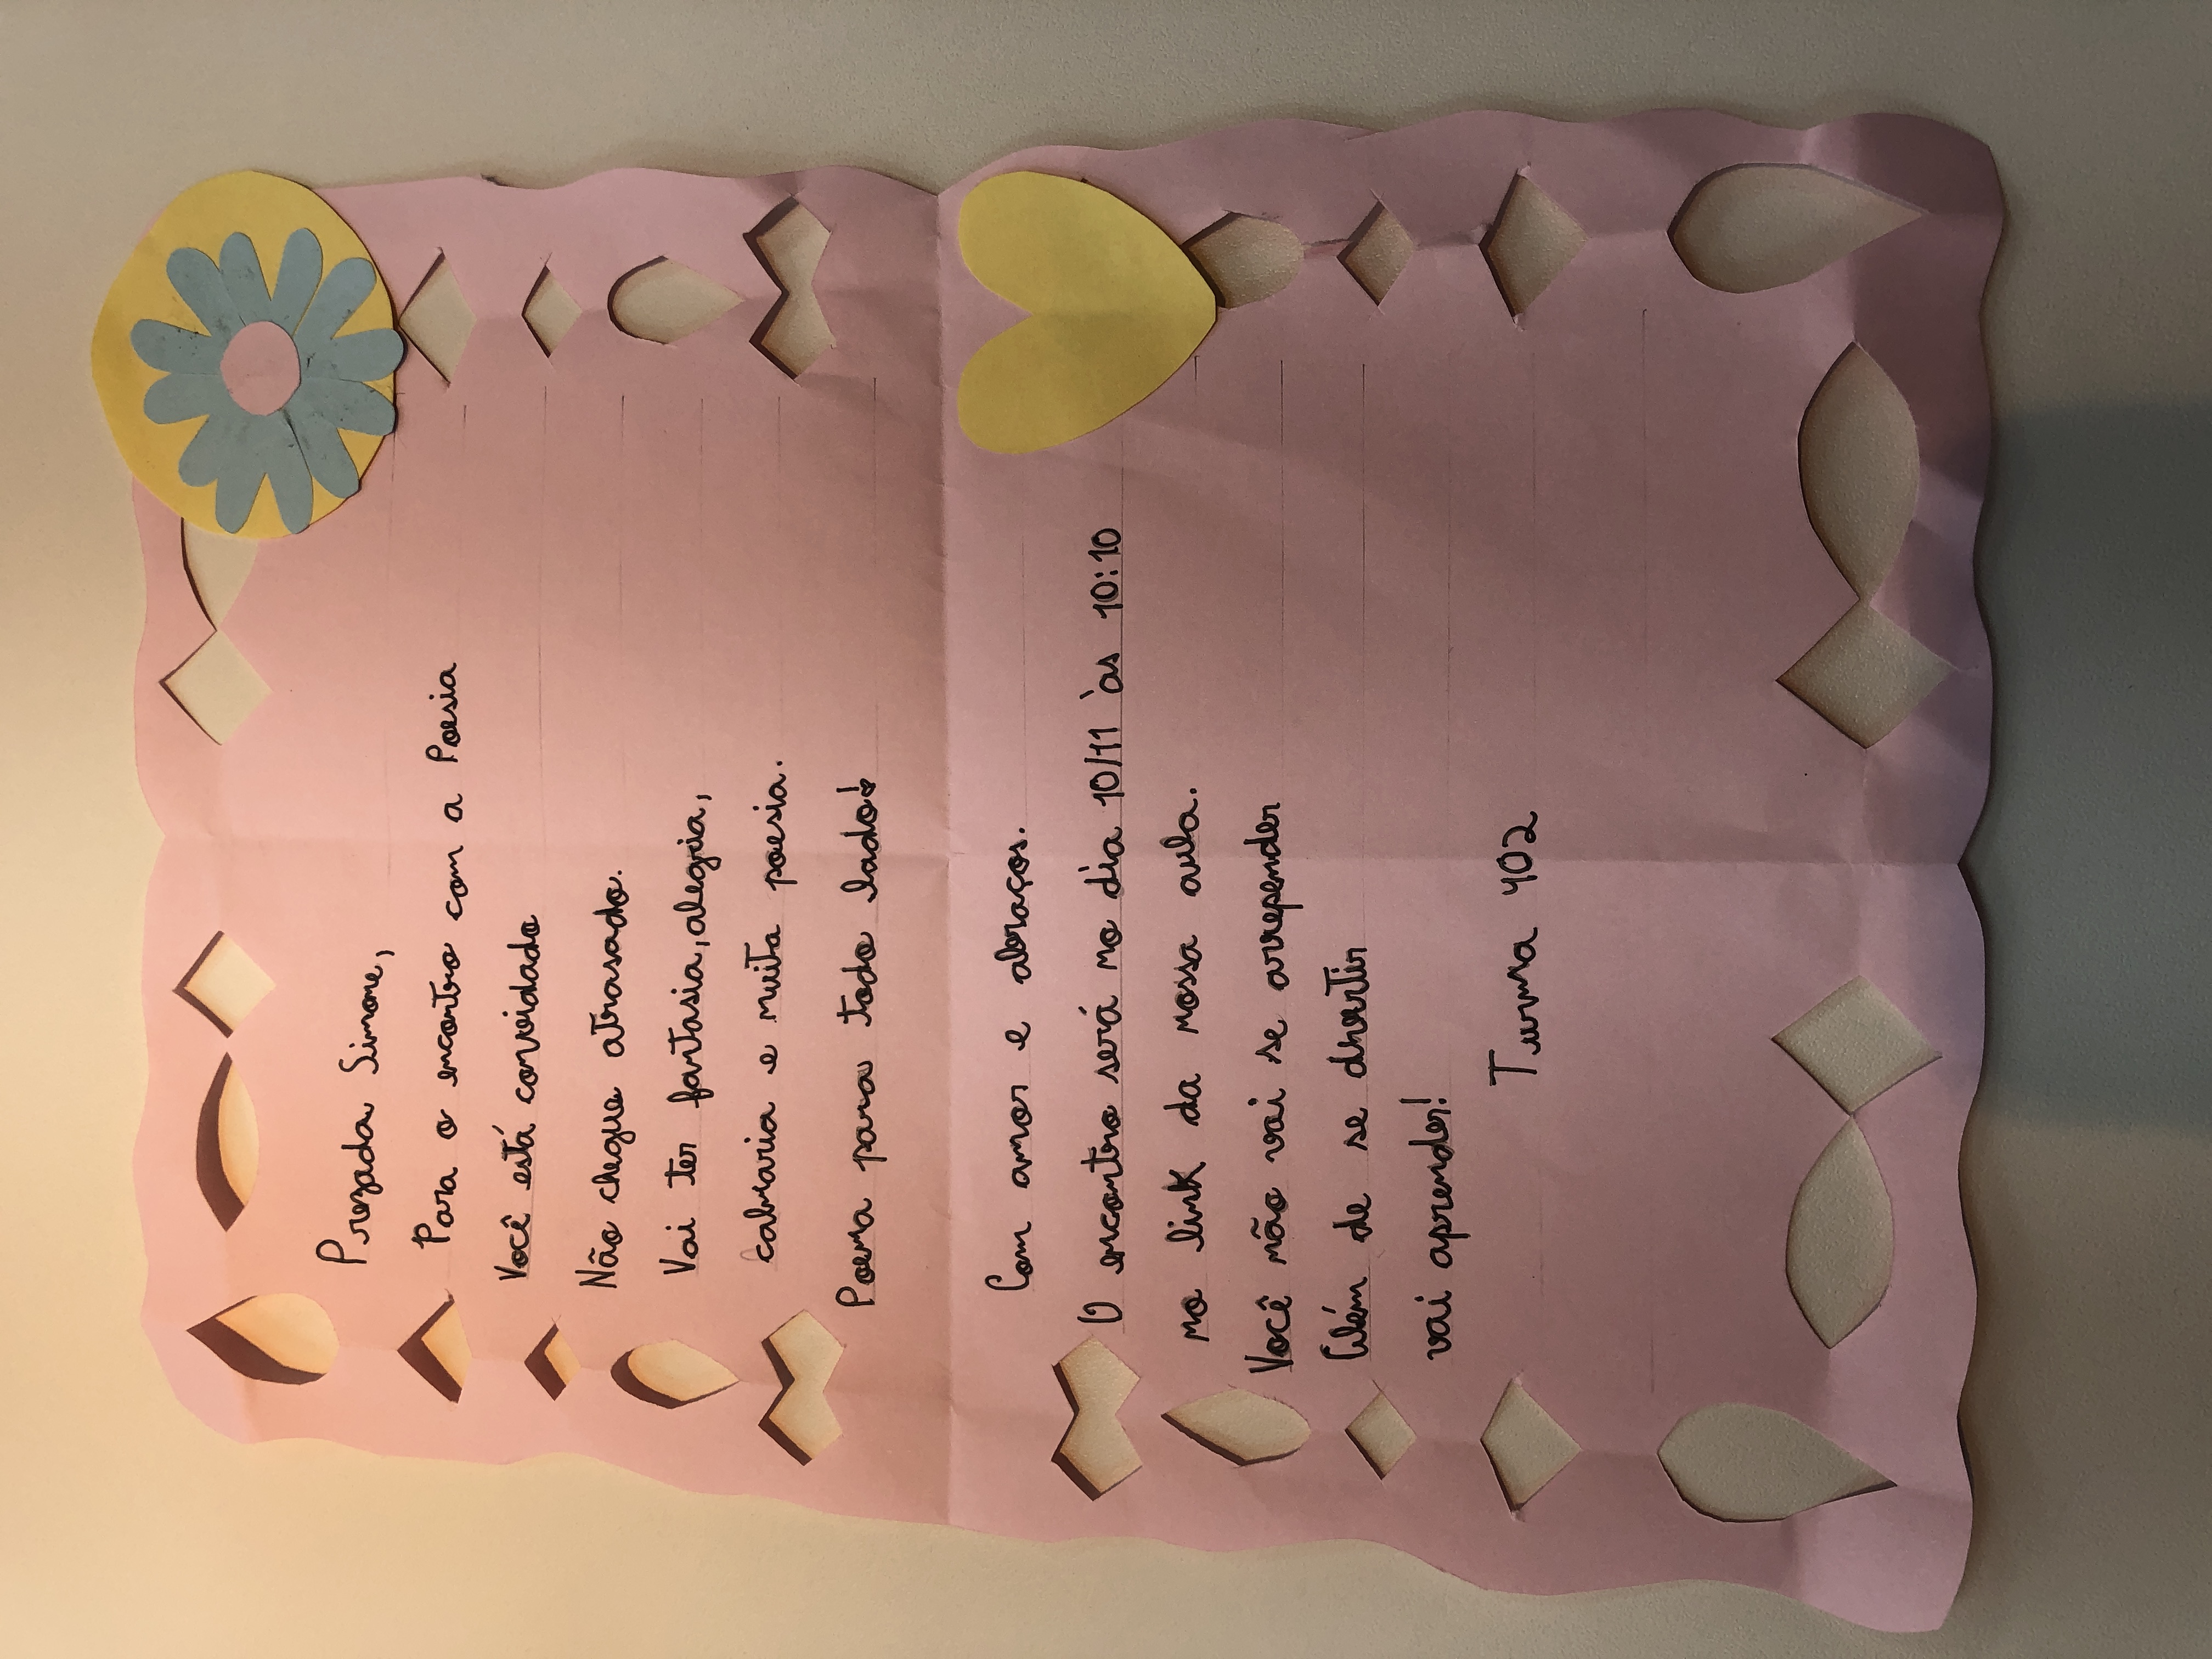 Prezada Simone,
Para o encontro com a Poesia
Você está convidado
Não chegue atrasado.
Vai ter fantasia, alegria,
calmaria e muita poesia.
Poema para todo lado!
Com amor e abraços.
O encontro será no dia 10/11 às 10:10
no link da nossa aula.
Você não vai se arrepender
Além de se divertir
vai aprender!
Turma 402